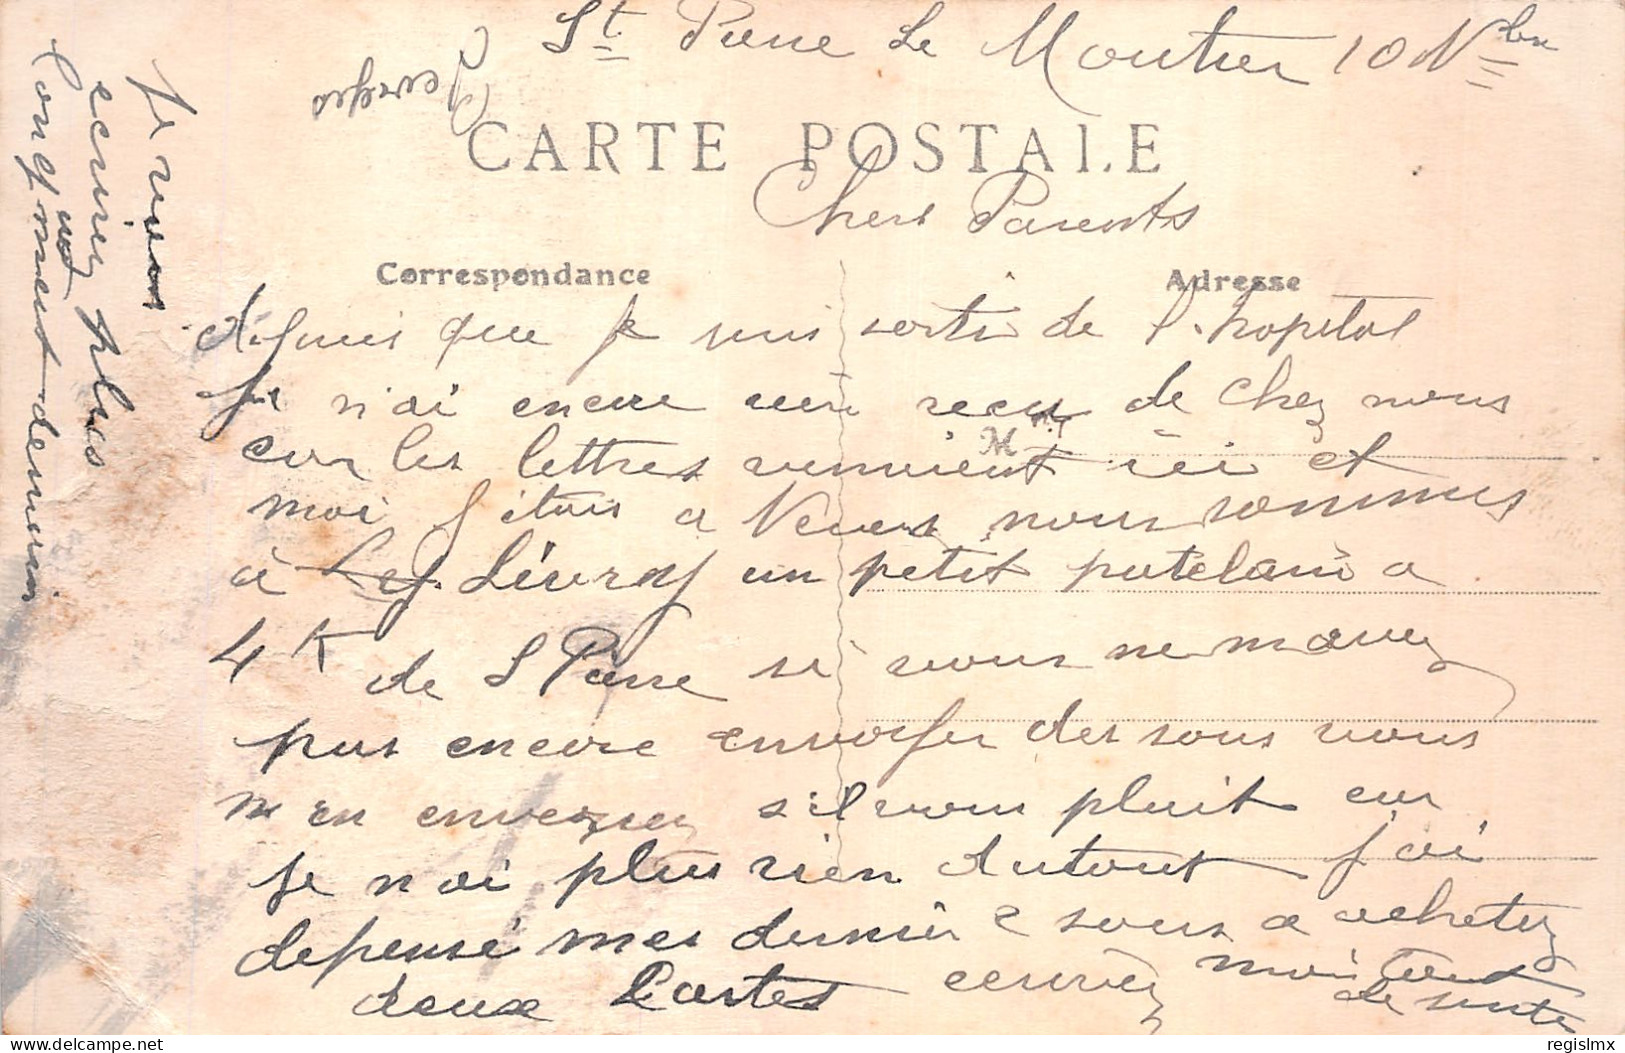 St Pierre Le Moutier 10 Nbre
CARTE POSTALE
Chers Parents
Correspondance
Adresse
depuis que je suis sorti de l'hopital
Je n'ai encore rien recu de chez nous
car les lettres venaient ici et
moi j'etais a Nevers nous sommes
à Livry un petit patelain a
4 K de S Pierre si vous ne mavez
pas encore envoyer des sous vous
m en enverrez s'il vous plait car
Je n ai plus rien dutout j'ai
depensé mes dernier 2 sous a achetez
deux Cartes ecrivez moi tout
de suite
Je vous
ecrirez plus
longment demain